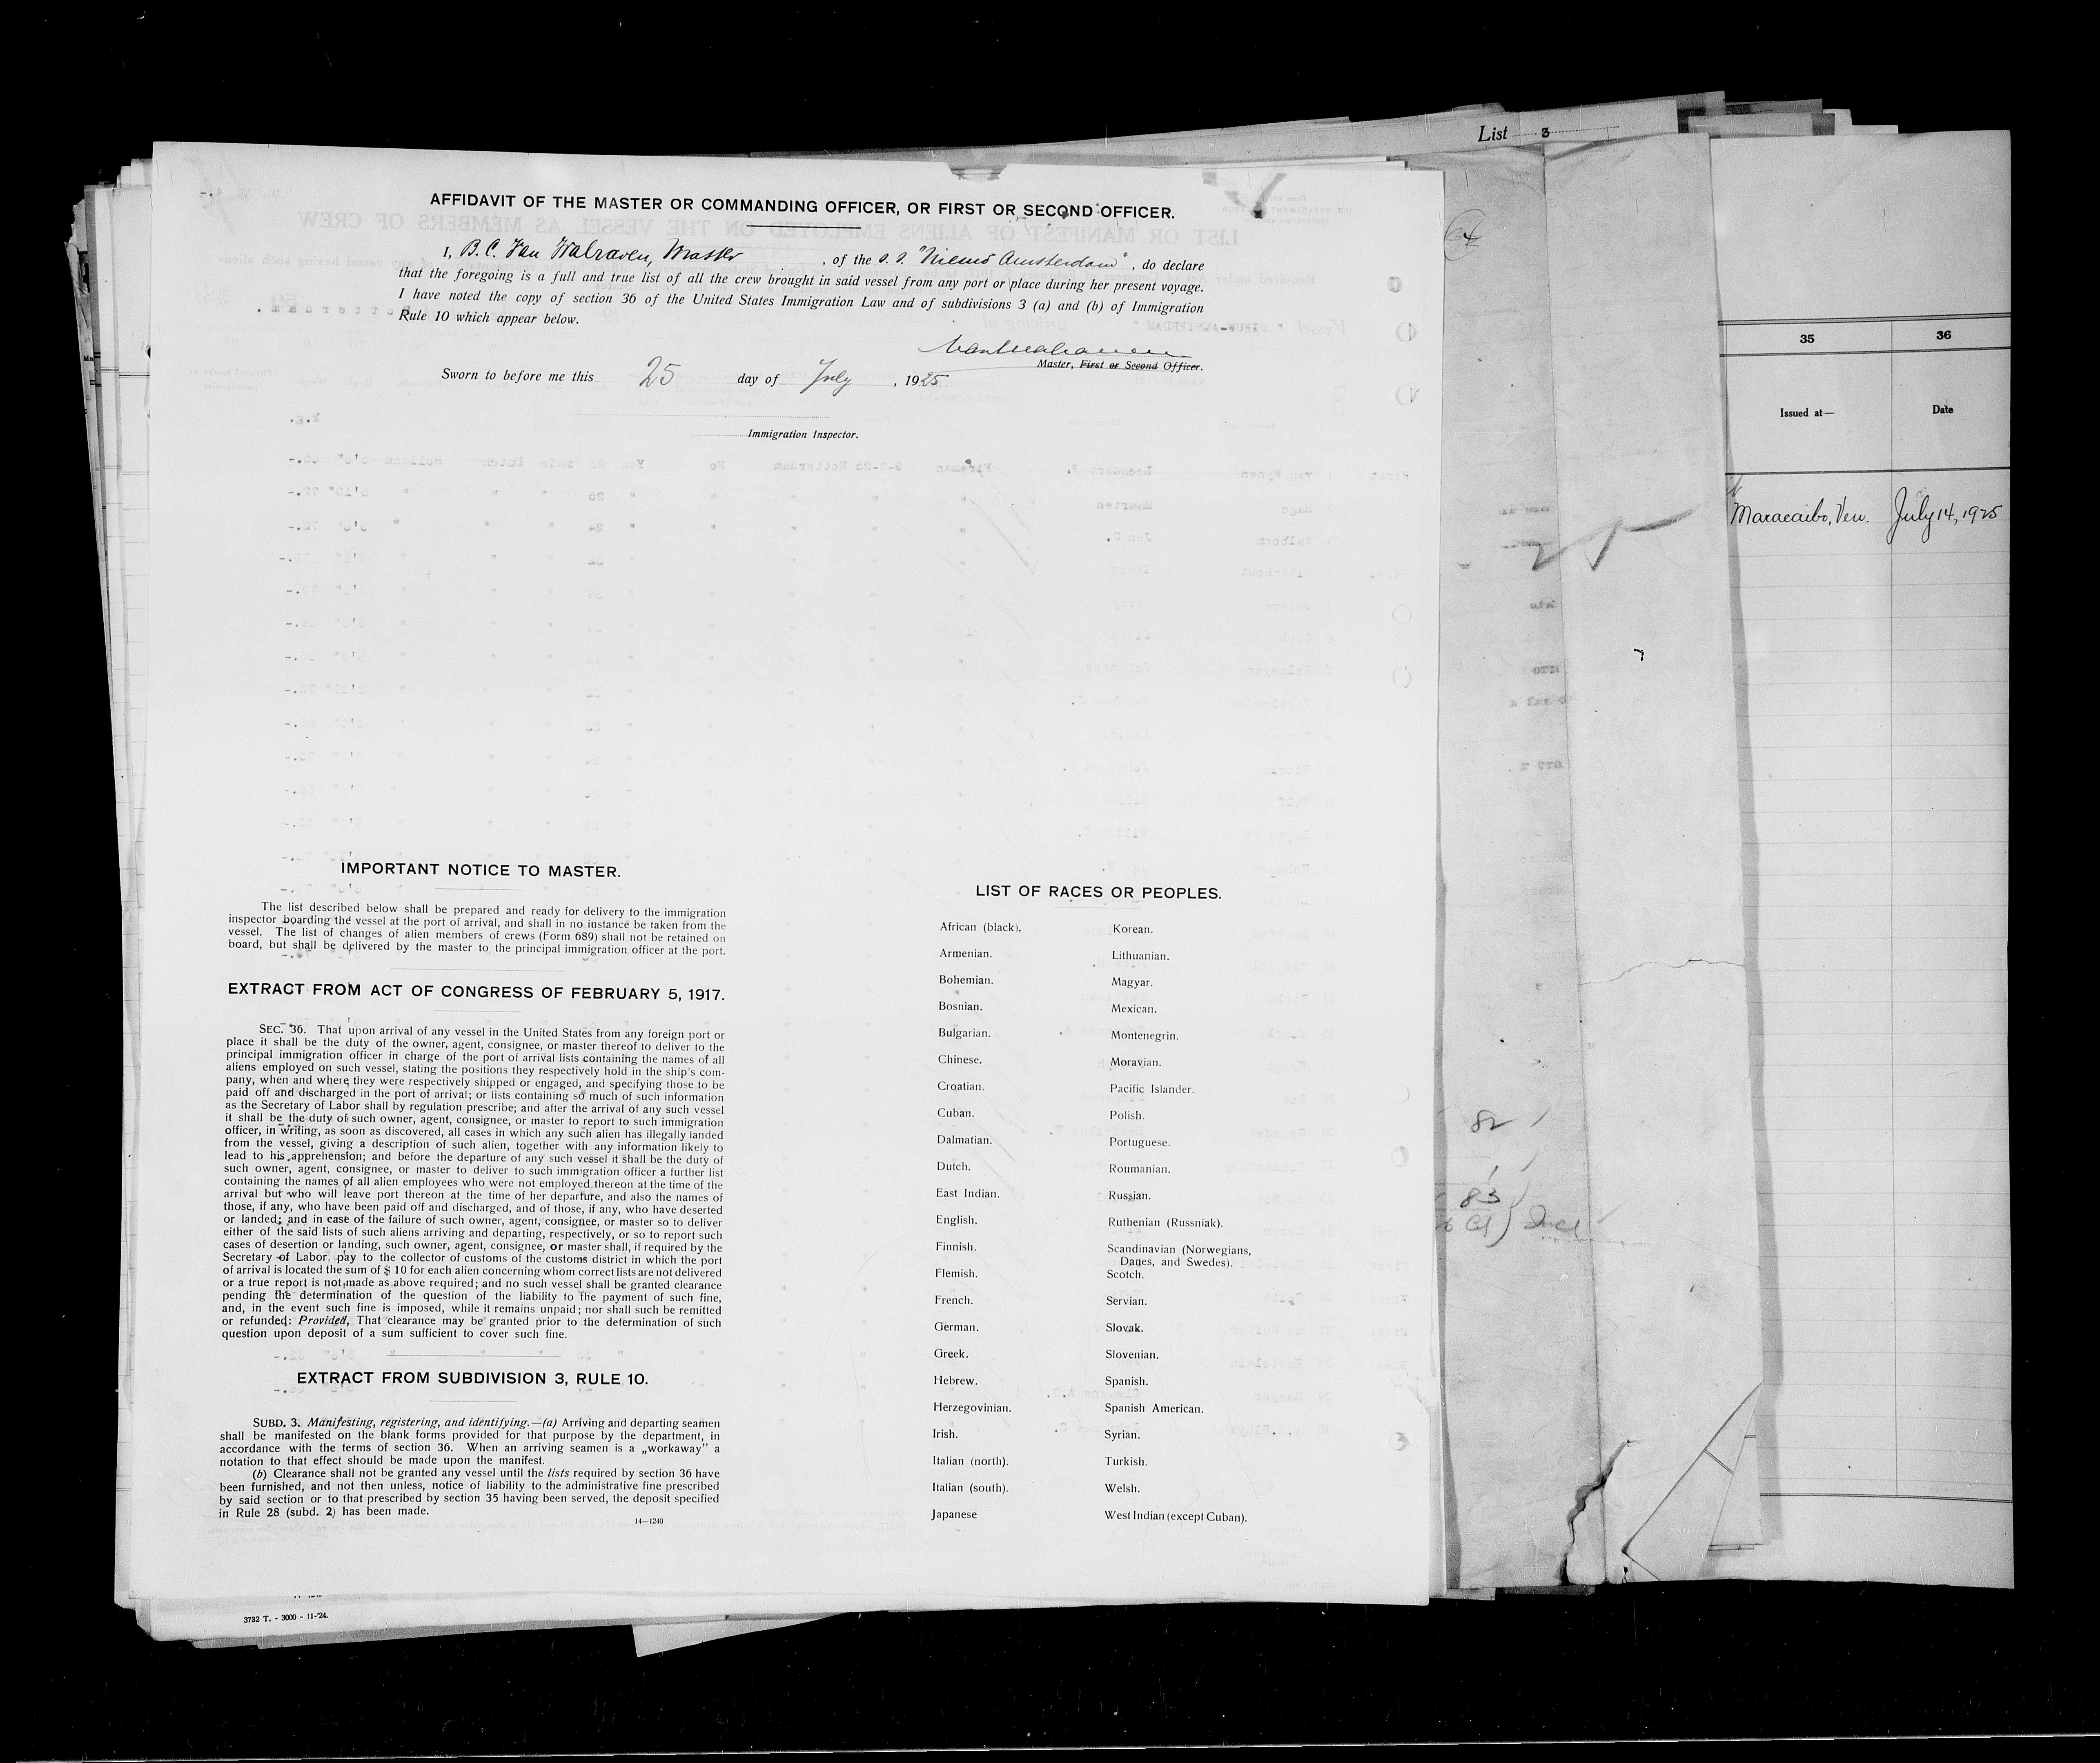 List 3
AFFIDAVIT OF THE MASTER OR COMMANDING OFFICER, OR FIRST OR SECOND OFFICER.
I, B. C. Van Walraven, Master, of the s.s. "Nieuw Amsterdam", do declare
that the foregoing is a full and true list of all the crew brought in said vessel from any port or place during her present voyage.
I have noted the copy of section 36 of the United States Immigration Law and of subdivisions 3 (a) and (b) of Immigration
Rule 10 which appear below.
Master, First or Second Officer.
Sworn to before me this 25 day of July, 1925
Immigration Inspector.
IMPORTANT NOTICE TO MASTER.
The list described below shall be prepared and ready for delivery to the immigration
inspector boarding the vessel at the port of arrival, and shall in no instance be taken from the
vessel. The list of changes of alien members of crews (Form 689) shall not be retained on
board, but shall be delivered by the master to the principal immigration officer at the port.
EXTRACT FROM ACT OF CONGRESS OF FEBRUARY 5, 1917.
SEC. 36. That upon arrival of any vessel in the United States from any foreign port or
place it shall be the duty of the owner, agent, consignee, or master thereof to deliver to the
principal immigration officer in charge of the port of arrival lists containing the names of all
aliens employed on such vessel, stating the positions they respectively hold in the ship's com-
pany, when and where they were respectively shipped or engaged, and specifying those to be
paid off and discharged in the port of arrival; or lists containing so much of such information
as the Secretary of Labor shall by regulation prescribe; and after the arrival of any such vessel
it shall be the duty of such owner, agent, consignee, or master to report to such immigration
officer, in writing, as soon as discovered, all cases in which any such alien has illegally landed
from the vessel, giving a description of such alien, together with any information likely to
lead to his apprehension; and before the departure of any such vessel it shall be the duty of
such owner, agent, consignee, or master to deliver to such immigration officer a further list
containing the names of all alien employees who were not employed thereon at the time of the
arrival but who will leave port thereon at the time of her departure, and also the names of
those, if any, who have been paid off and discharged, and of those, if any, who have deserted
or landed; and in case of the failure of such owner, agent, consignee, or master so to deliver
either of the said lists of such aliens arriving and departing, respectively, or so to report such
cases of desertion or landing, such owner, agent, consignee, or master shall, if required by the
Secretary of Labor, pay to the collector of customs of the customs district in which the port
of arrival is located the sum of $ 10 for each alien concerning whom correct lists are not delivered
or a true report is not made as above required; and no such vessel shall be granted clearance
pending the determination of the question of the liability to the payment of such fine,
and, in the event such fine is imposed, while it remains unpaid; nor shall such be remitted
or refunded: Provided, That clearance may be granted prior to the determination of such
question upon deposit of a sum sufficient to cover such fine.
EXTRACT FROM SUBDIVISION 3, RULE 10.
SUBD. 3. Manifesting, registering, and identifying.—(a) Arriving and departing seamen
shall be manifested on the blank forms provided for that purpose by the department, in
accordance with the terms of section 36. When an arriving seamen is a „workaway" a
notation to that effect should be made upon the manifest.
(b) Clearance shall not be granted any vessel until the lists required by section 36 have
been furnished, and not then unless, notice of liability to the administrative fine prescribed
by said section or to that prescribed by section 35 having been served, the deposit specified
in Rule 28 (subd. 2) has been made.
14—1240
LIST OF RACES OR PEOPLES.
African (black).
Armenian.
Bohemian.
Bosnian.
Bulgarian.
Chinese.
Croatian.
Cuban.
Dalmatian.
Dutch.
East Indian.
English.
Finnish.
Flemish.
French.
German.
Greek.
Hebrew.
Herzegovinian.
Irish.
Italian (north).
Italian (south).
Japanese
Korean.
Lithuanian.
Magyar.
Mexican.
Montenegrin.
Moravian.
Pacific Islander.
Polish.
Portuguese.
Roumanian.
Russian.
Ruthenian (Russniak).
Scandinavian (Norwegians,
Danes, and Swedes).
Scotch.
Servian.
Slovak.
Slovenian.
Spanish.
Spanish American.
Syrian.
Turkish.
Welsh.
West Indian (except Cuban).
3732 T. - 3000 - 11-'24.
82
83
35 36
Issued at— Date
Maracaibo, Ven. July 14, 1925